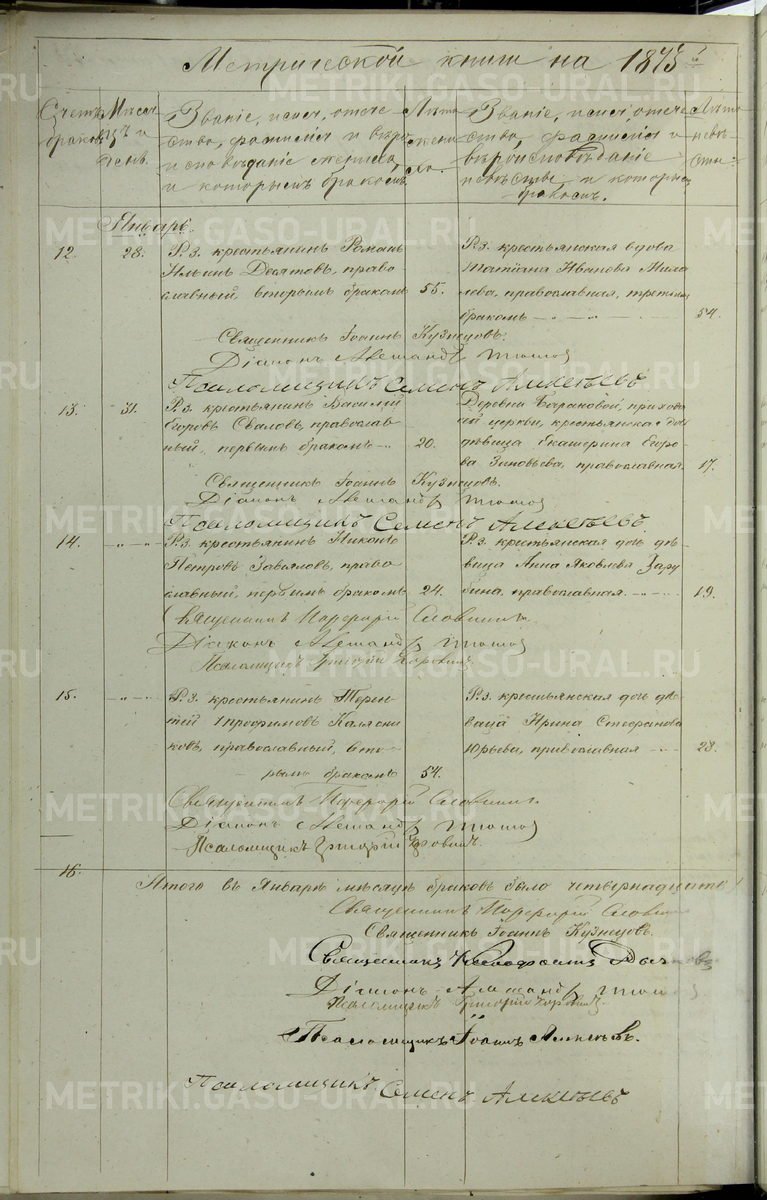 Метрической книги на 1875 г.
Счетъ браковъ
Месяцъ и день
Званіе, имя, отчество, фамилія и вѣроисповѣданіе жениха, и которымъ бракомъ
Лѣта жениха.
Званіе, имя, отчество, фамилія и вѣроисповѣданіе невѣсты и которымъ бракомъ.
Лѣта невѣсты.
Январь.
12.
28.
Р. з. крестьянинъ Романъ
Ильинъ Десятовъ, право
славный, вторымъ бракомъ
55.
Р. з. крестьянская вдова
Татіана Иванова
православная, третьимъ
бракомъ
54.
Священникъ Іоаннъ Кузнецовъ.
Діаконъ
Псаломщикъ Семенъ Алексѣевъ
13.
31.
Р. з. крестьянинъ Василій
Егоровъ православ
ный, первымъ бракомъ
20.
Деревни прихода
сей церкви, крестьянская дочь
дѣвица Екатерина Егоро
ва Зиновьева, православная
17.
Священникъ Іоаннъ Кузнецовъ.
Діаконъ
Псаломщикъ Семенъ Алексѣевъ.
14.
Р. з. крестьянинъ Никонъ
Петровъ Завьяловъ, право
славный, первымъ бракомъ
24.
Р. з. крестьянская дочь дѣ
вица Анна Яковлева Зару
бина, православная.
19.
Священникъ Порфирій
Діаконъ
Псаломщикъ Григорій
15.
Р. з. крестьянинъ Терен
тій Трофимовъ
православный, вто
рымъ бракомъ
54.
Р. з. крестьянская дочь дѣ
вица Ирина Стефанова
Юрьева, православная
23.
Священникъ Порфирій
Діаконъ
Псаломщикъ Григорій
16.
Итого въ Январѣ мѣсяцѣ браковъ было четырнадцать
Священникъ Порфирій
Священникъ Іоаннъ Кузнецовъ.
Священникъ
Діаконъ
Псаломщикъ Григорій
Псаломщикъ Іоаннъ
Псаломщикъ Семенъ Алексѣевъ
METRIKI.GASO-URAL.RU